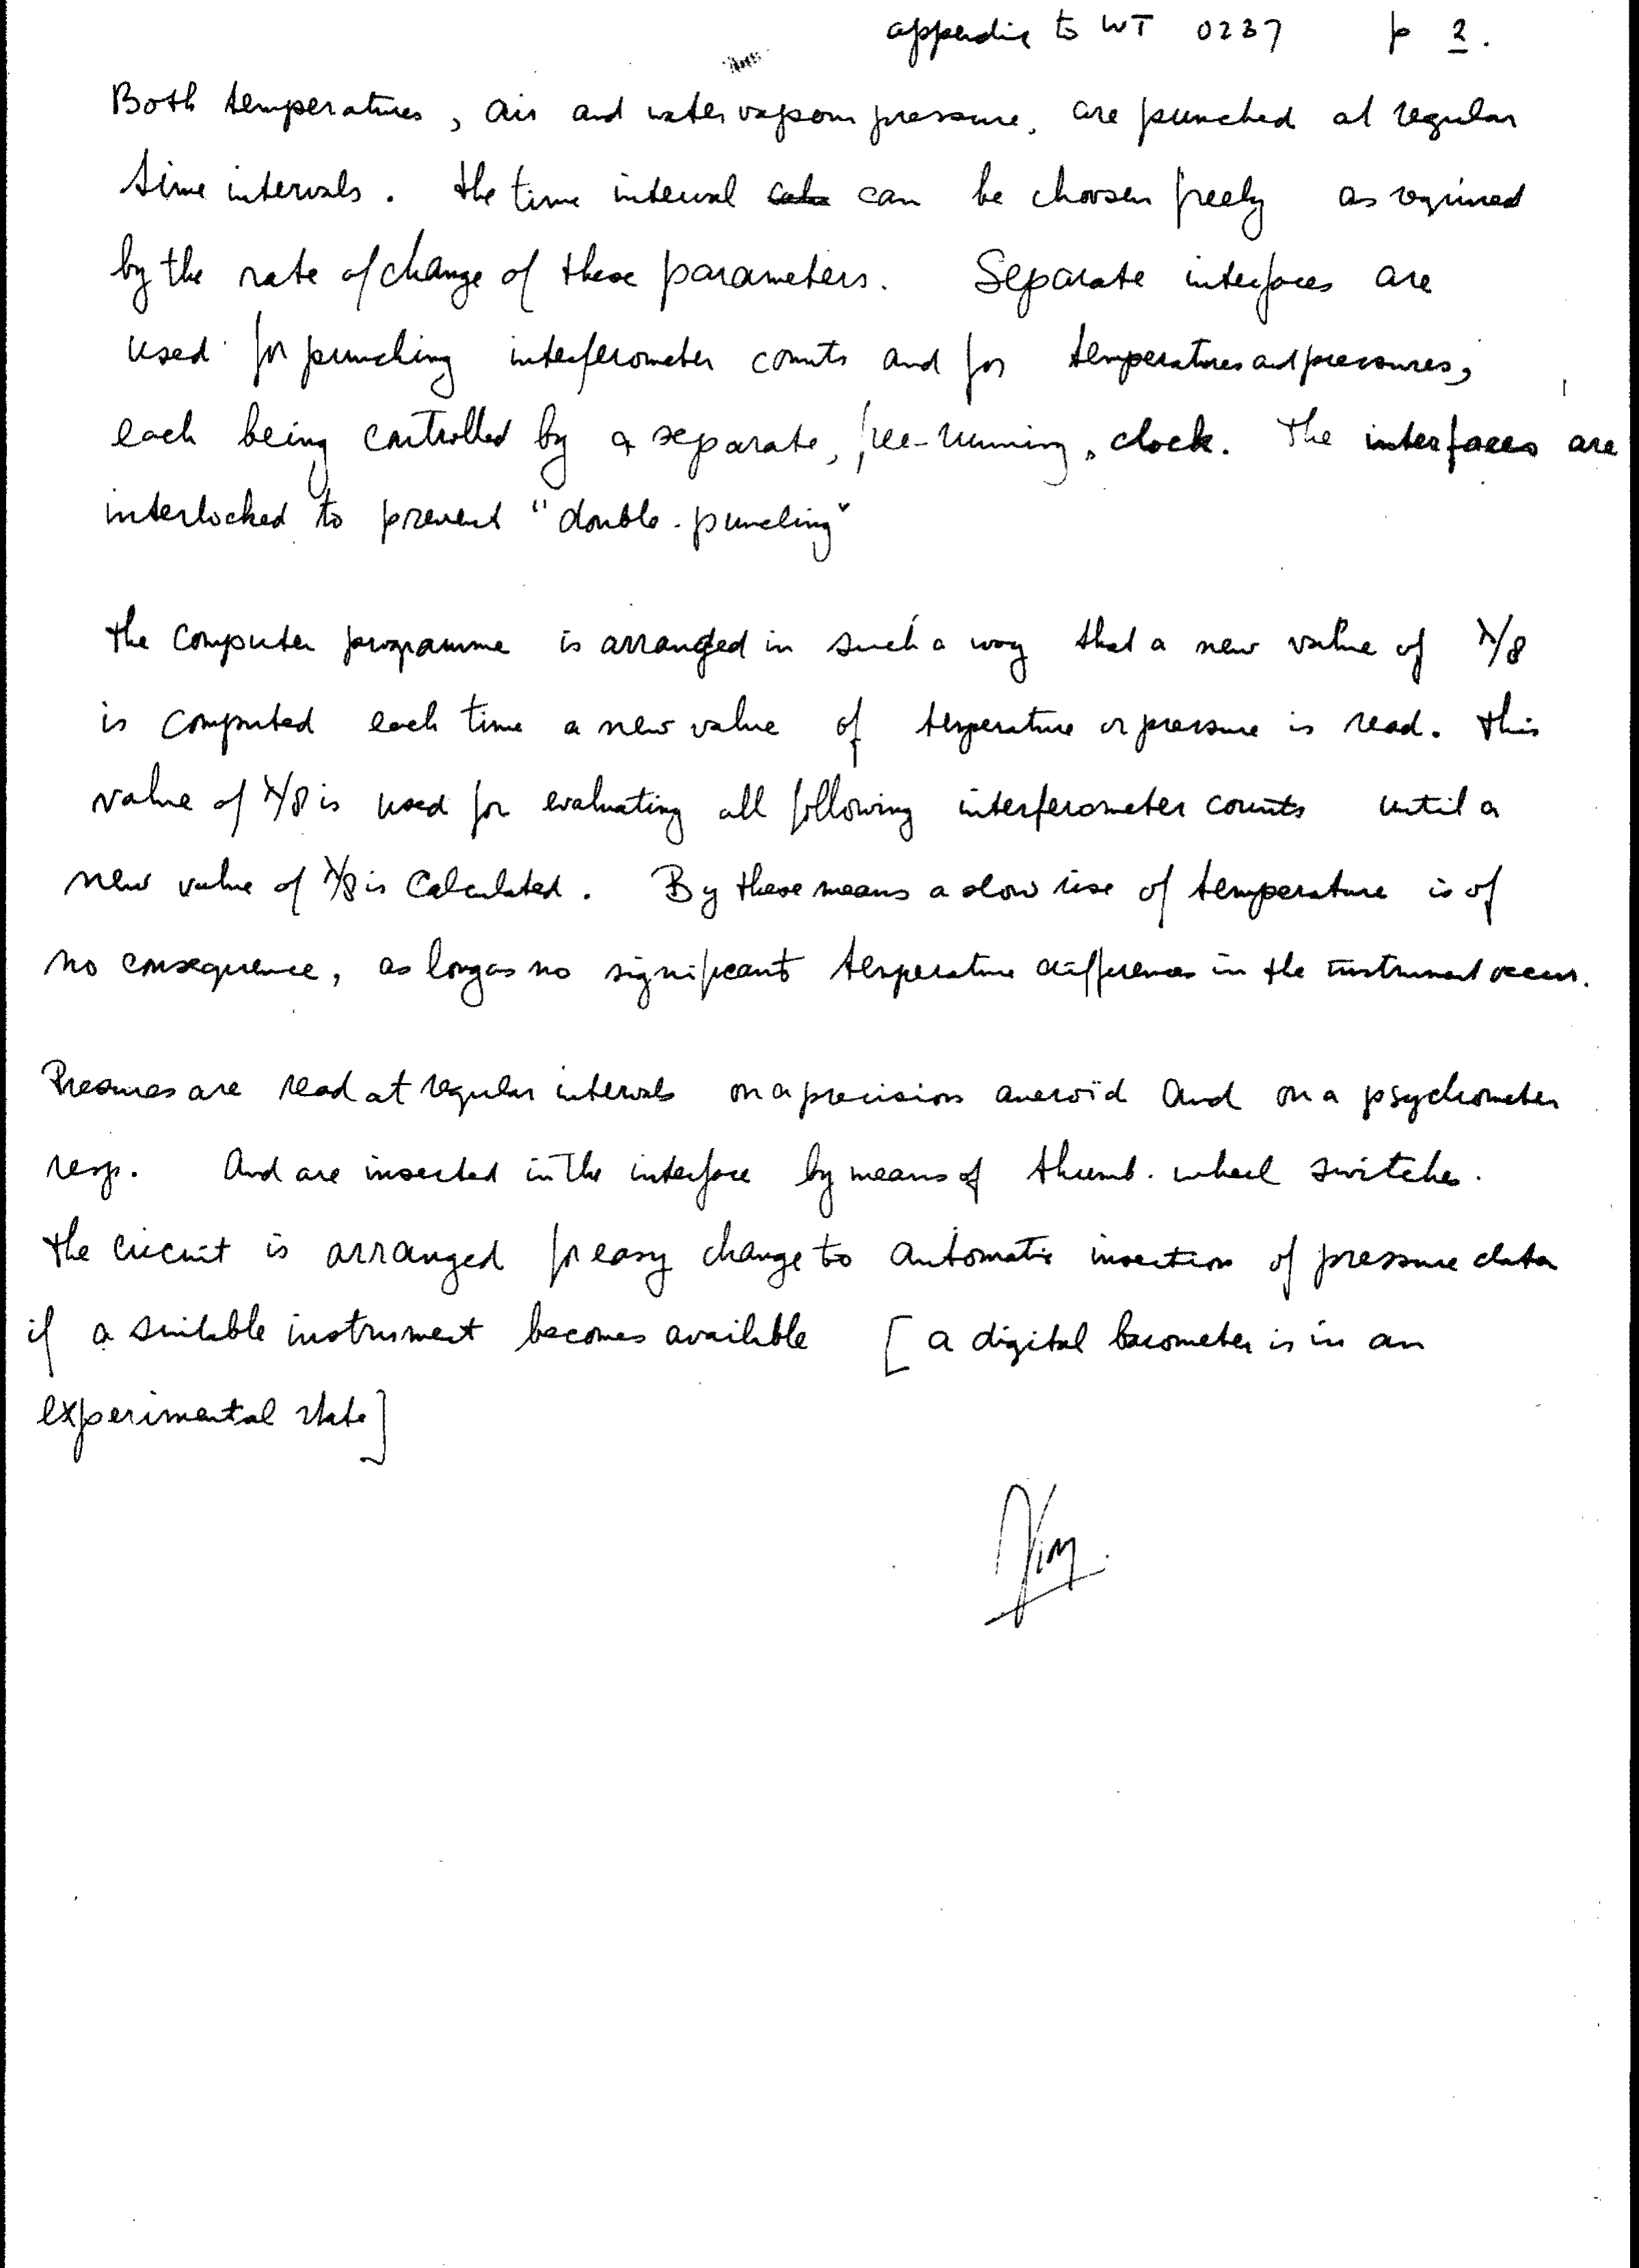 appendix to WT 0237 p 2.
Both temperatures, air and water vapour pressure, are punched at regular
time intervals. the time interval can be choosen freely as required
by the rate of change of these parameters. Separate interfaces are
used for punching interferometer counts and for temperatures and pressures,
each being controlled by a separate, free-running, clock. The interfaces are
interlocked to prevent "double-punching"
the computer programme is arranged in such a way that a new value of λ/8
is computed each time a new value of temperature or pressure is read. this
value of λ/8 is used for evaluating all following interferometer counts until a
new value of λ/8 is calculated. By these means a slow rise of temperature is of
no consequence, as long as no significant temperature differences in the instrument occur.
Pressures are read at regular intervals on a precision aneroïd and on a psychrometer
resp. And are inserted in the interface by means of thumb-wheel switches.
the circuit is arranged for easy change to automatic insertion of pressure data
if a suitable instrument becomes available [a digital barometer is in an
experimental state]